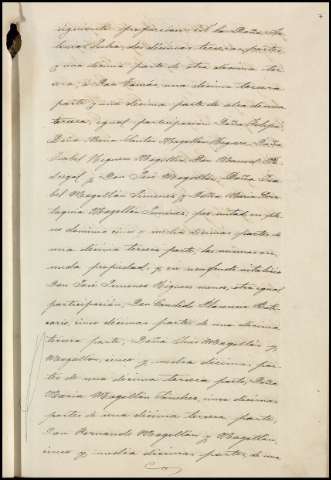 siguiente proporcion: á la Doña
Luisa, dos décimas terceras partes
y una décima parte de otra décima ter-
cera; á Don Tomás, una décima tercera
parte y una décima parte de otra décima
tercera; igual participación Doña Felipa,
Doña María Santos Magallón Higuera, Doña
Isabel Higuera Magallón, Don Manuel
y Don José Magallón, Doña Isa-
bel Magallón Jimenez y Doña María
Magallón Jimenez, por mitad en ple-
no dominio cinco y media décimas partes de
una décima tercera parte, las mismas en
nuda propiedad, y en usufructo vitalicio
Don José Jimenez Higuera menor, otra igual
participación; Don Candido Florencio
cinco décimas partes de una décima
tercera parte; Doña Luisa Magallón y
Magallón, cinco y media décimas par-
tes de una décima tercera parte; Doña
María Magallón Sanchez, once décimas
partes de una décima tercera parte;
Don Fernando Magallón y Magallón,
cinco y media décimas partes de una